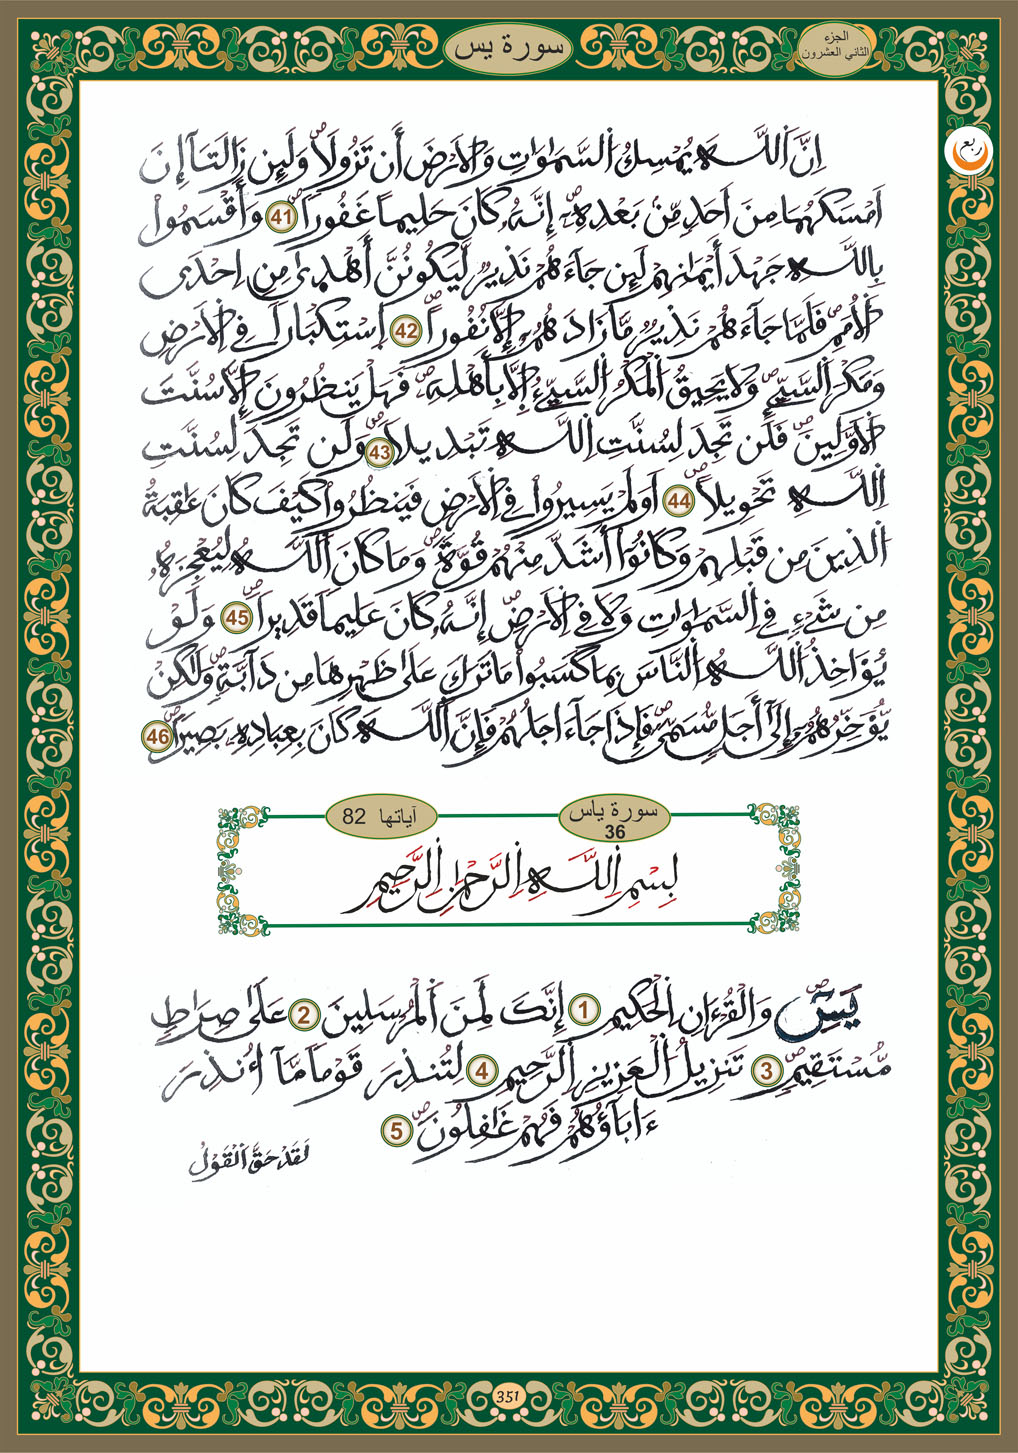 سورة يس
الجزء
الثاني العشرون
ربع
إِنَّ اَ۬للَّهَ يُمْسِكُ اُ۬لسَّمَٰوَٰتِ وَالَارْضَ أَن تَزُولَاۖ وَلَئِن زَالَتَآ إِنَ
اَمْسَكَهُمَا مِنَ اَحَدٖ مِّنۢ بَعْدِهِۦۖ إِنَّهُۥ كَانَ حَلِيماً غَفُوراٗۖ 41 وَأَقْسَمُواْ
بِاللَّهِ جَهْدَ أَيْمَٰنِهِمْ لَئِن جَآءَهُمْ نَذِيرٞ لَّيَكُونُنَّ أَهْد۪ىٰ مِنِ اِحْدَى
اَ۬لُامَمِۖ فَلَمَّا جَآءَهُمْ نَذِيرٞ مَّا زَادَهُمُۥٓ إِلَّا نُفُوراًۖ 42 اِ۪سْتِكْبَاراٗ فِے اِ۬لَارْضِ
وَمَكْرَ اَ۬لسَّيِّےِٕۖ وَلَا يَحِيقُ اُ۬لْمَكْرُ اُ۬لسَّيِّئُ اِ۪لَّا بِأَهْلِهِۦۖ فَهَلْ يَنظُرُونَ إِلَّا سُنَّتَ
اَ۬لَاوَّلِينَۖ فَلَن تَجِدَ لِسُنَّتِ اِ۬للَّهِ تَبْدِيلاٗۖ 43 وَلَن تَجِدَ لِسُنَّتِ
اِ۬للَّهِ تَحْوِيلاًۖ 44 اَوَلَمْ يَسِيرُواْ فِے اِ۬لَارْضِ فَيَنظُرُواْ كَيْفَ كَانَ عَٰقِبَةُ
اُ۬لذِينَ مِن قَبْلِهِمْ وَكَانُوٓاْ أَشَدَّ مِنْهُمْ قُوَّةٗۖ وَمَا كَانَ اَ۬للَّهُ لِيُعْجِزَهُۥ
مِن شَےْءٖ فِے اِ۬لسَّمَٰوَٰتِ وَلَا فِے اِ۬لَارْضِۖ إِنَّهُۥ كَانَ عَلِيماٗ قَدِيراٗۖ 45 وَلَوْ
يُؤَاخِذُ اُ۬للَّهُ اُ۬لنَّاسَ بِمَا كَسَبُواْ مَا تَرَكَ عَلَىٰ ظَهْرِهَا مِن دَآبَّةٖۖ وَلَٰكِنْ
يُّؤَخِّرُهُمُۥٓ إِلَىٰٓ أَجَلٖ مُّسَمّىٗۖ فَإِذَا جَآءَ اَجَلُهُمْ فَإِنَّ اَ۬للَّهَ كَانَ بِعِبَادِهِۦ بَصِيراٗۖ 46
سورة ياس
36
آياتها 82
بِسْمِ اِ۬للَّهِ اِ۬لرَّحْمَٰنِ اِ۬لرَّحِيمِ
يَسِٓۖ وَالْقُرْءَانِ اِ۬لْحَكِيمِ 1 إِنَّكَ لَمِنَ اَ۬لْمُرْسَلِينَ 2 عَلَىٰ صِرَٰطٖ
مُّسْتَقِيمٖۖ 3 تَنزِيلُ اُ۬لْعَزِيزِ اِ۬لرَّحِيمِ 4 لِتُنذِرَ قَوْماٗ مَّآ أُنذِرَ
ءَابَآؤُهُمْ فَهُمْ غَٰفِلُونَۖ 5
لَقَدْ حَقَّ اَ۬لْقَوْلُ
351